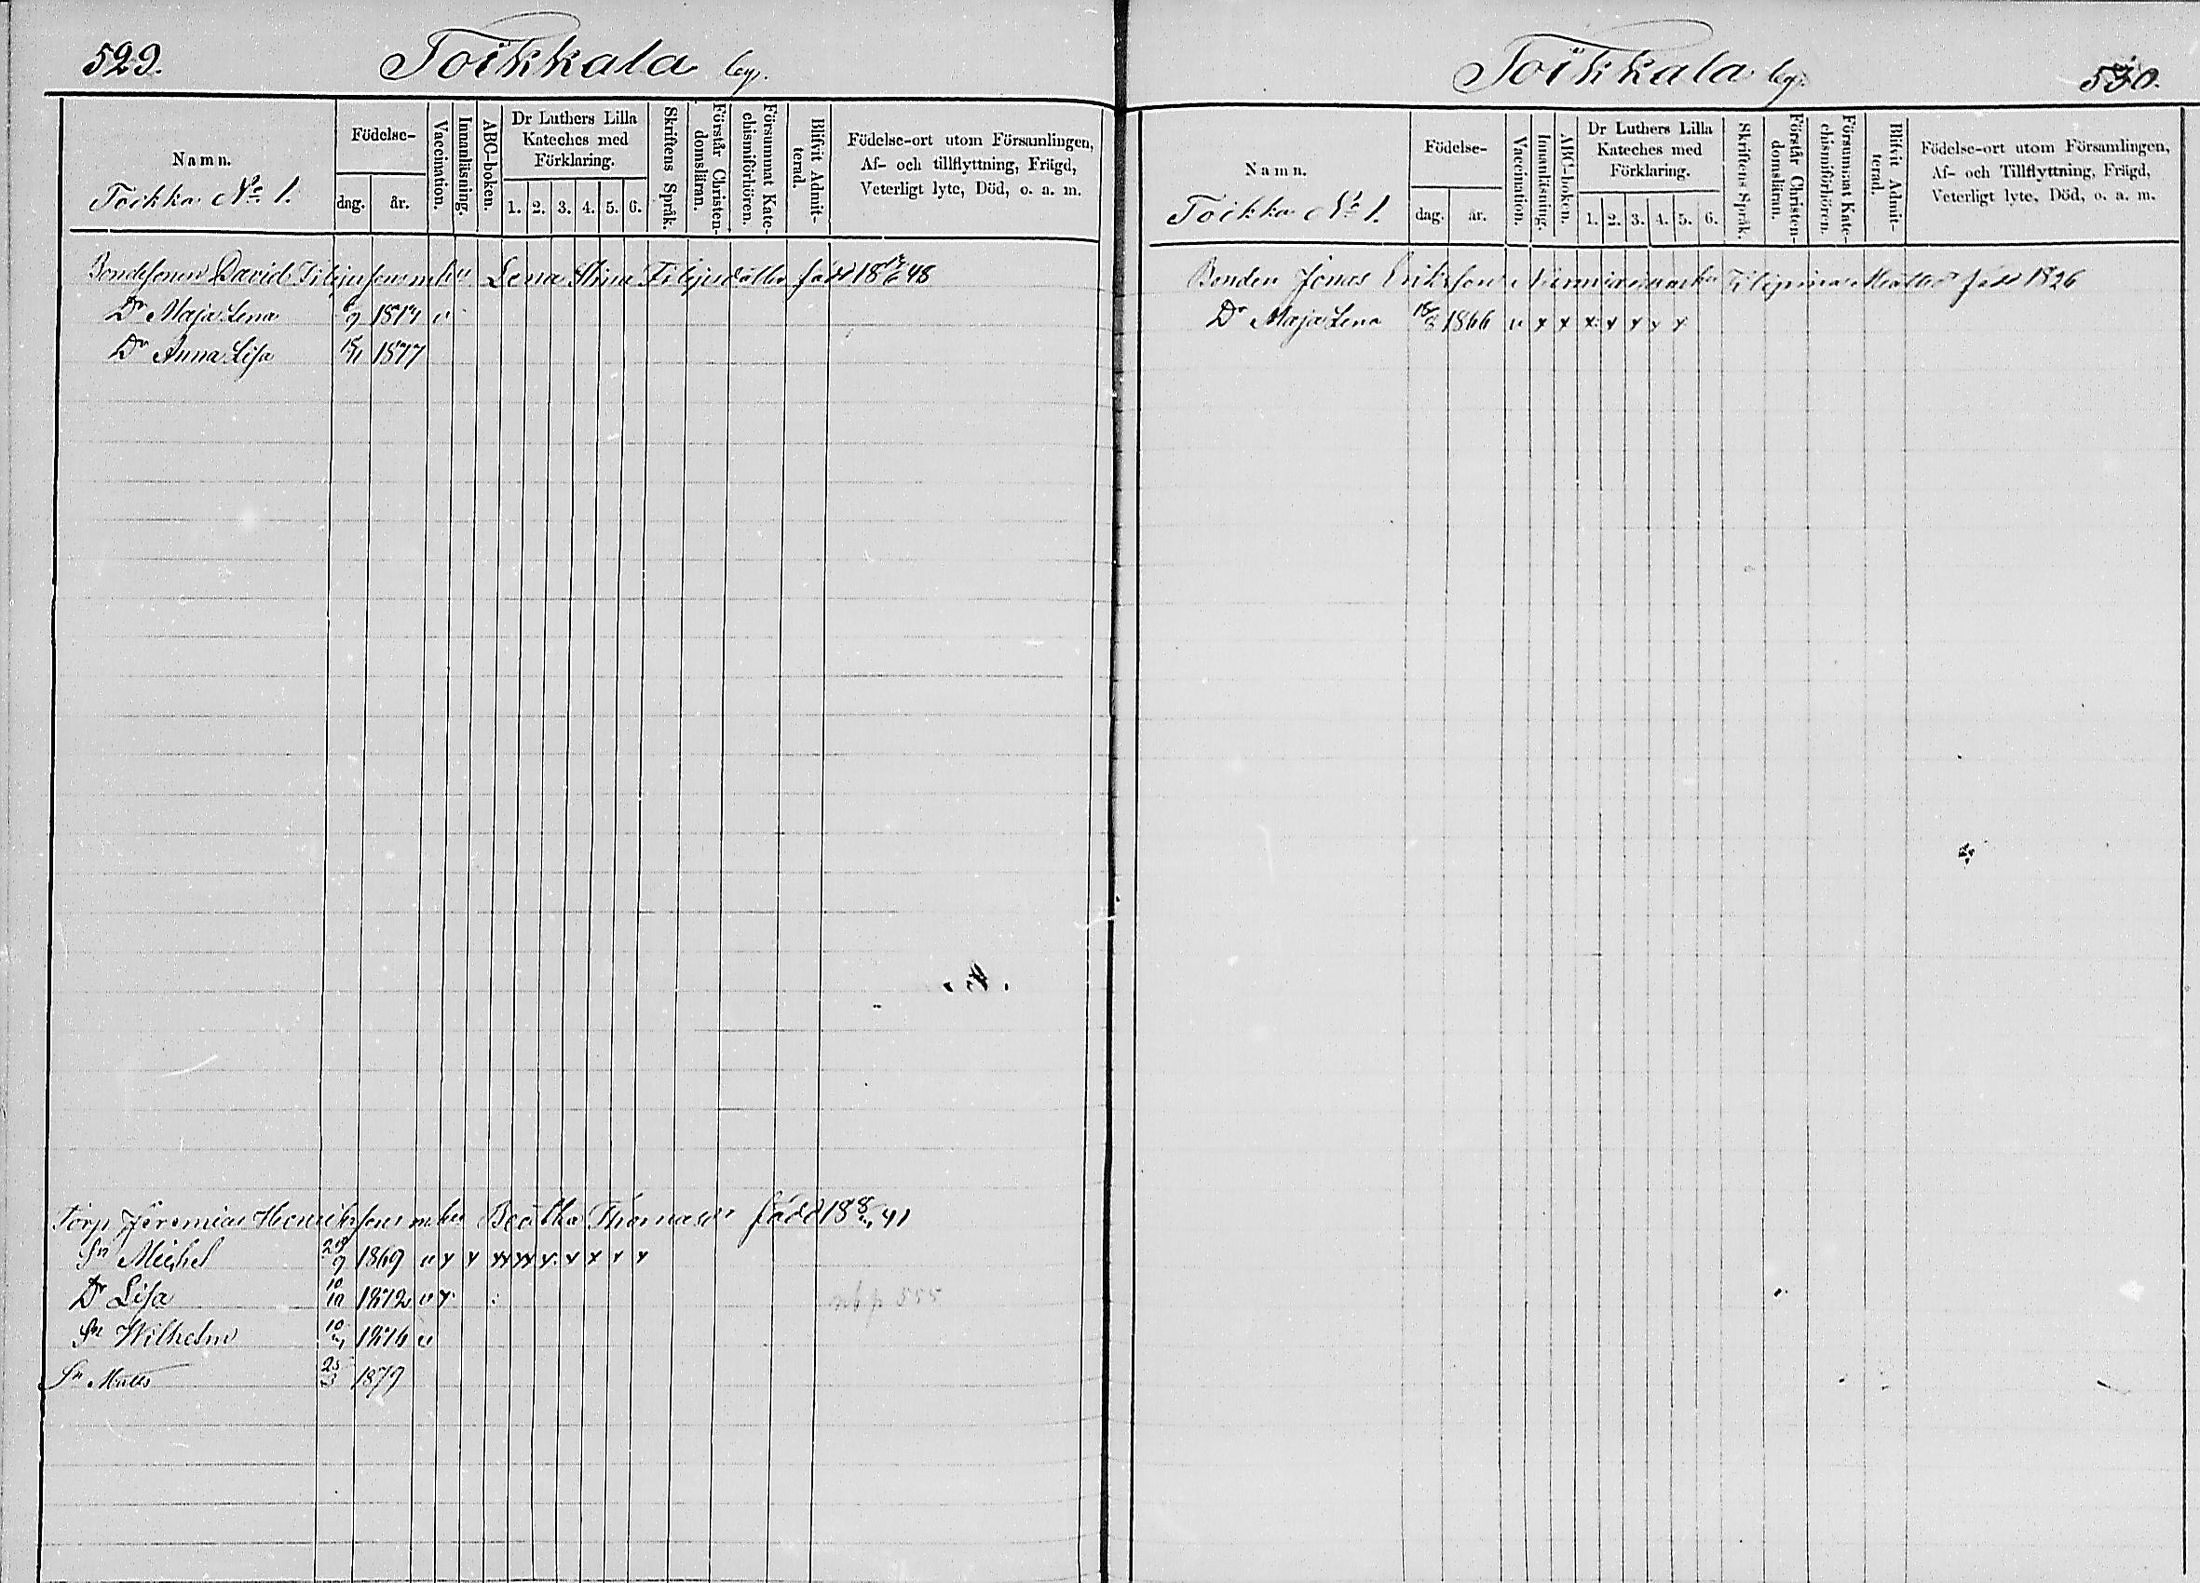 529.
Toikkala by.
Namn.
Toikka No 1.
Födelse-
dag.
år.
Vaccination.
Innanläsning.
ABC-boken.
Dr Luthers Lilla
Kateches med
Förklaring.
1. 2. 3. 4. 5. 6.
Skriftens Språk.
Förstår Christen-
domsläran.
Försummat Kate-
chismiförhören.
Blifvit Admit-
terad.
Födelse-ort utom Församlingen,
Af- och tillflyttning, Frägd,
Veterligt lyte, Död, o. a. m.
Bondesonen David Filipsson m hu Lena Stina Filipsdotter född 18 48
Dr Maja Lena 1874 v
Dr Anna Lisa 1877
Torp. Jeremias Henriksson m hu Beatha Thomasdr född 18 41
Sn Michel 29/9 1869 v x x xx xx x x x x x
Dr Lisa 10/10 1872 v x
Sn Wilhelm 1876 v
Sn Matts 25/3 1879
Toikkala by.
530.
Namn.
Toikka No 1.
Födelse-
dag.
år.
Vaccination.
Innanläsning.
ABC-boken.
Dr Luthers Lilla
Kateches med
Förklaring.
1. 2. 3. 4. 5. 6.
Skriftens Språk.
Förstår Christen-
domsläran.
Försummat Kate-
chismiförhören.
Blifvit Admit-
terad.
Födelse-ort utom Församlingen,
Af- och Tillflyttning, Frägd,
Veterligt lyte, Död, o. a. m.
Bonden Jonas Eriksson född 1826
Dr Maja Lena 1866 v x x x x x x x